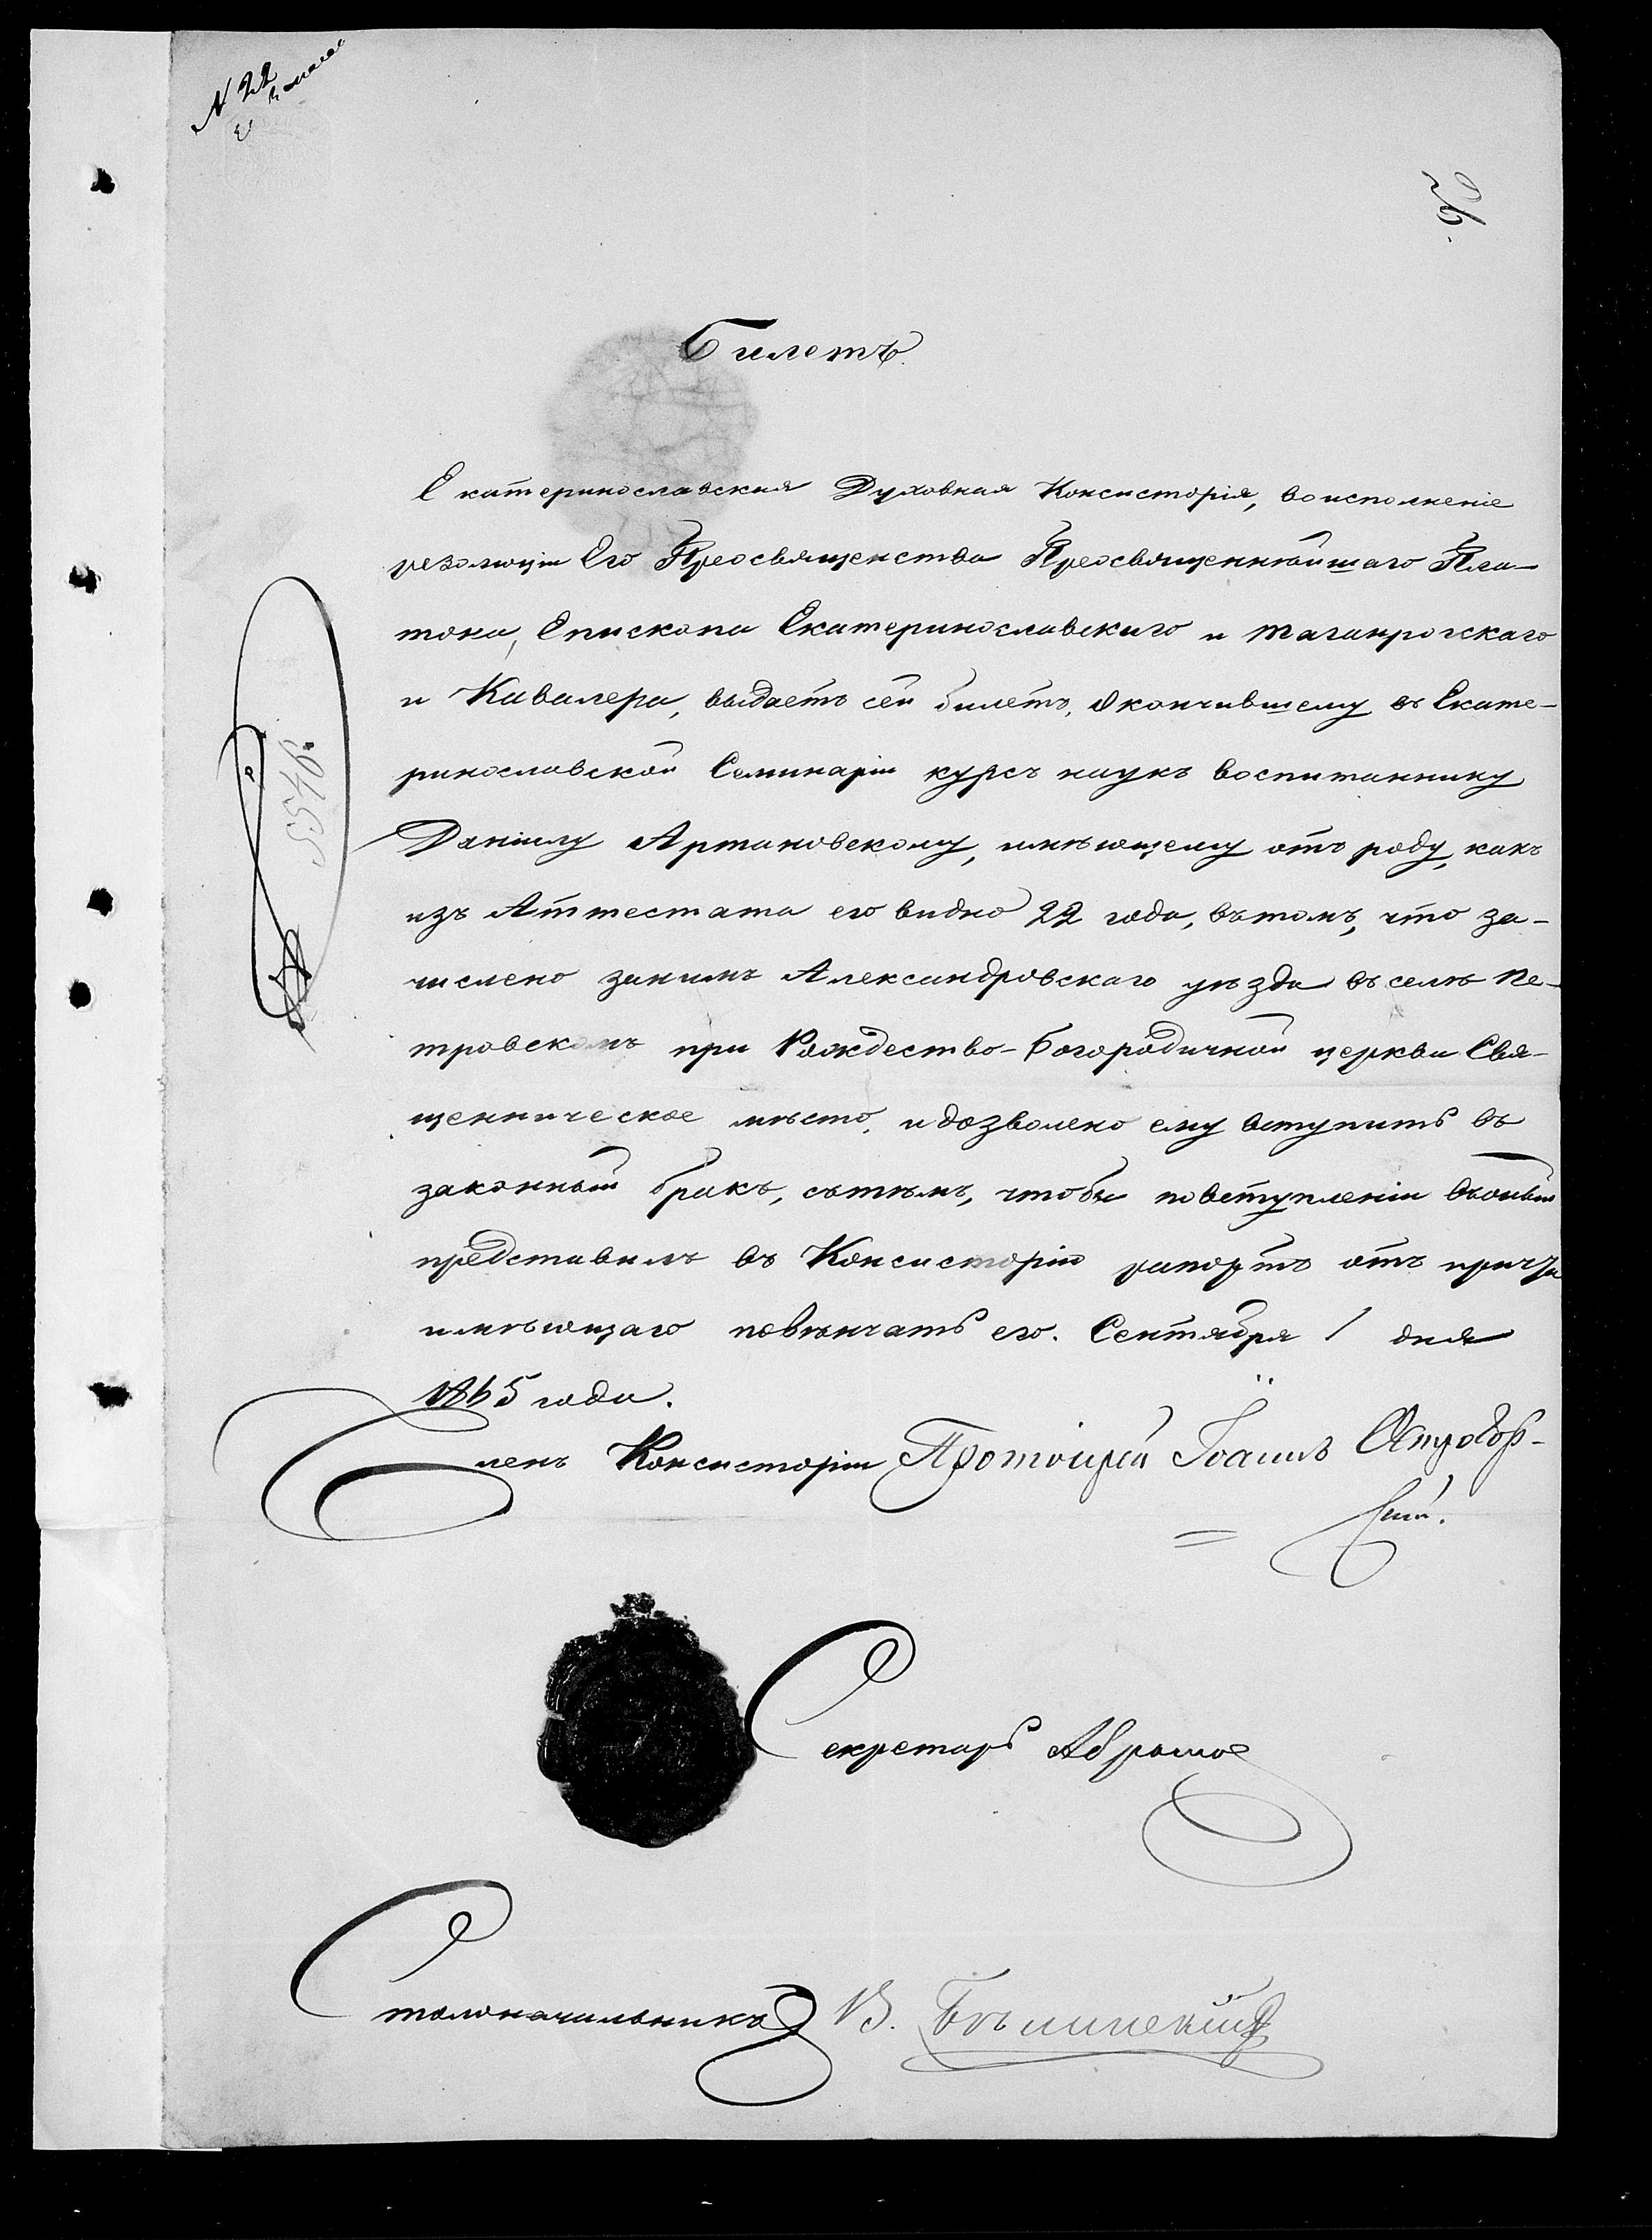 N 22
26.
Билетъ.
Екатеринославская Духовная Консисторія, во исполненіе
резолюціи Его Преосвященства Преосвященнѣйшаго Пла-
тона, Епископа Екатеринославскаго и Таганрогскаго
и Кавалера, выдаетъ сей билетъ, окончившему въ Екате-
ринославской Семинаріи курсъ наукъ воспитаннику
Даніилу Артановскому, имѣющему отъ роду, какъ
изъ Аттестата его видно 22 года, въ томъ, что за-
числено за нимъ Александровскаго уѣзда въ селѣ Пе-
тровскомъ при Рождество-Богородичной церкви Свя-
щенническое мѣсто, и дозволено ему вступить въ
законный бракъ, съ тѣмъ, чтобы по вступленіи въ оный
представилъ въ Консисторію рапортъ отъ причта
имѣющаго повѣнчать его. Сентября 1 дня
1865 года.
5546.
Членъ Консисторіи Протоіерей Іоаннъ
Секретарь
Столоначальникъ В.